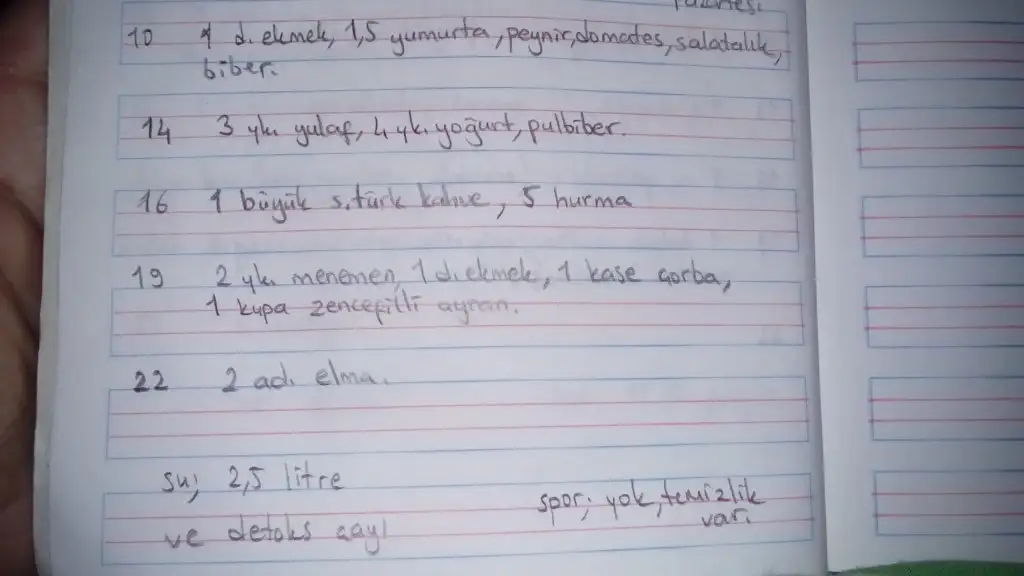 10 1 d. ekmek, 1,5 yumurta, peynir, domates, salatalık,
biber.
14 3 yk. yulaf, 4 yk. yoğurt, pulbiber.
16 1 büyük s. türk kahve, 5 hurma
19 2 yk. menemen, 1 d. ekmek, 1 kase çorba,
1 kupa zencefilli ayran.
22 2 ad. elma.
su; 2,5 litre
ve detoks çayı
spor; yok, temizlik
var.